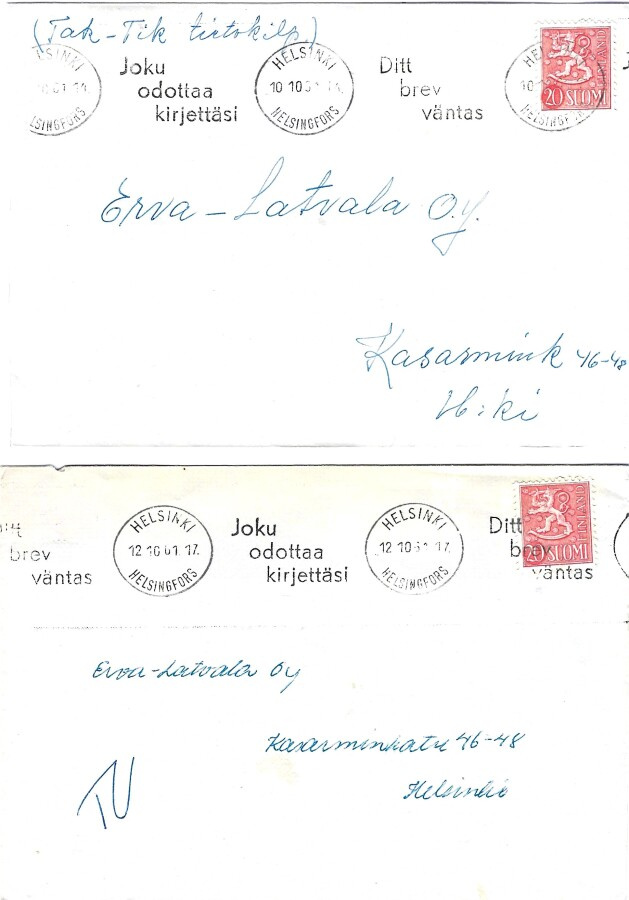 (Tak-Tik tietokilp.)
HELSINKI
HELSINGFORS
Joku
odottaa
kirjettäsi
HELSINKI
10 10 61
HELSINGFORS
Ditt
brev
väntas
FINLAND
20 SUOMI
Erva-Latvala O.y.
Kasarmink 46-48
H:ki
Ditt
brev
väntas
HELSINKI
12 10 61. 17.
HELSINGFORS
Joku
odottaa
kirjettäsi
HELSINKI
12 10 61 17.
HELSINGFORS
Ditt
brev
väntas
FINLAND
20 SUOMI
Erva-Latvala Oy
Kasarminkatu 46-48
Helsinki